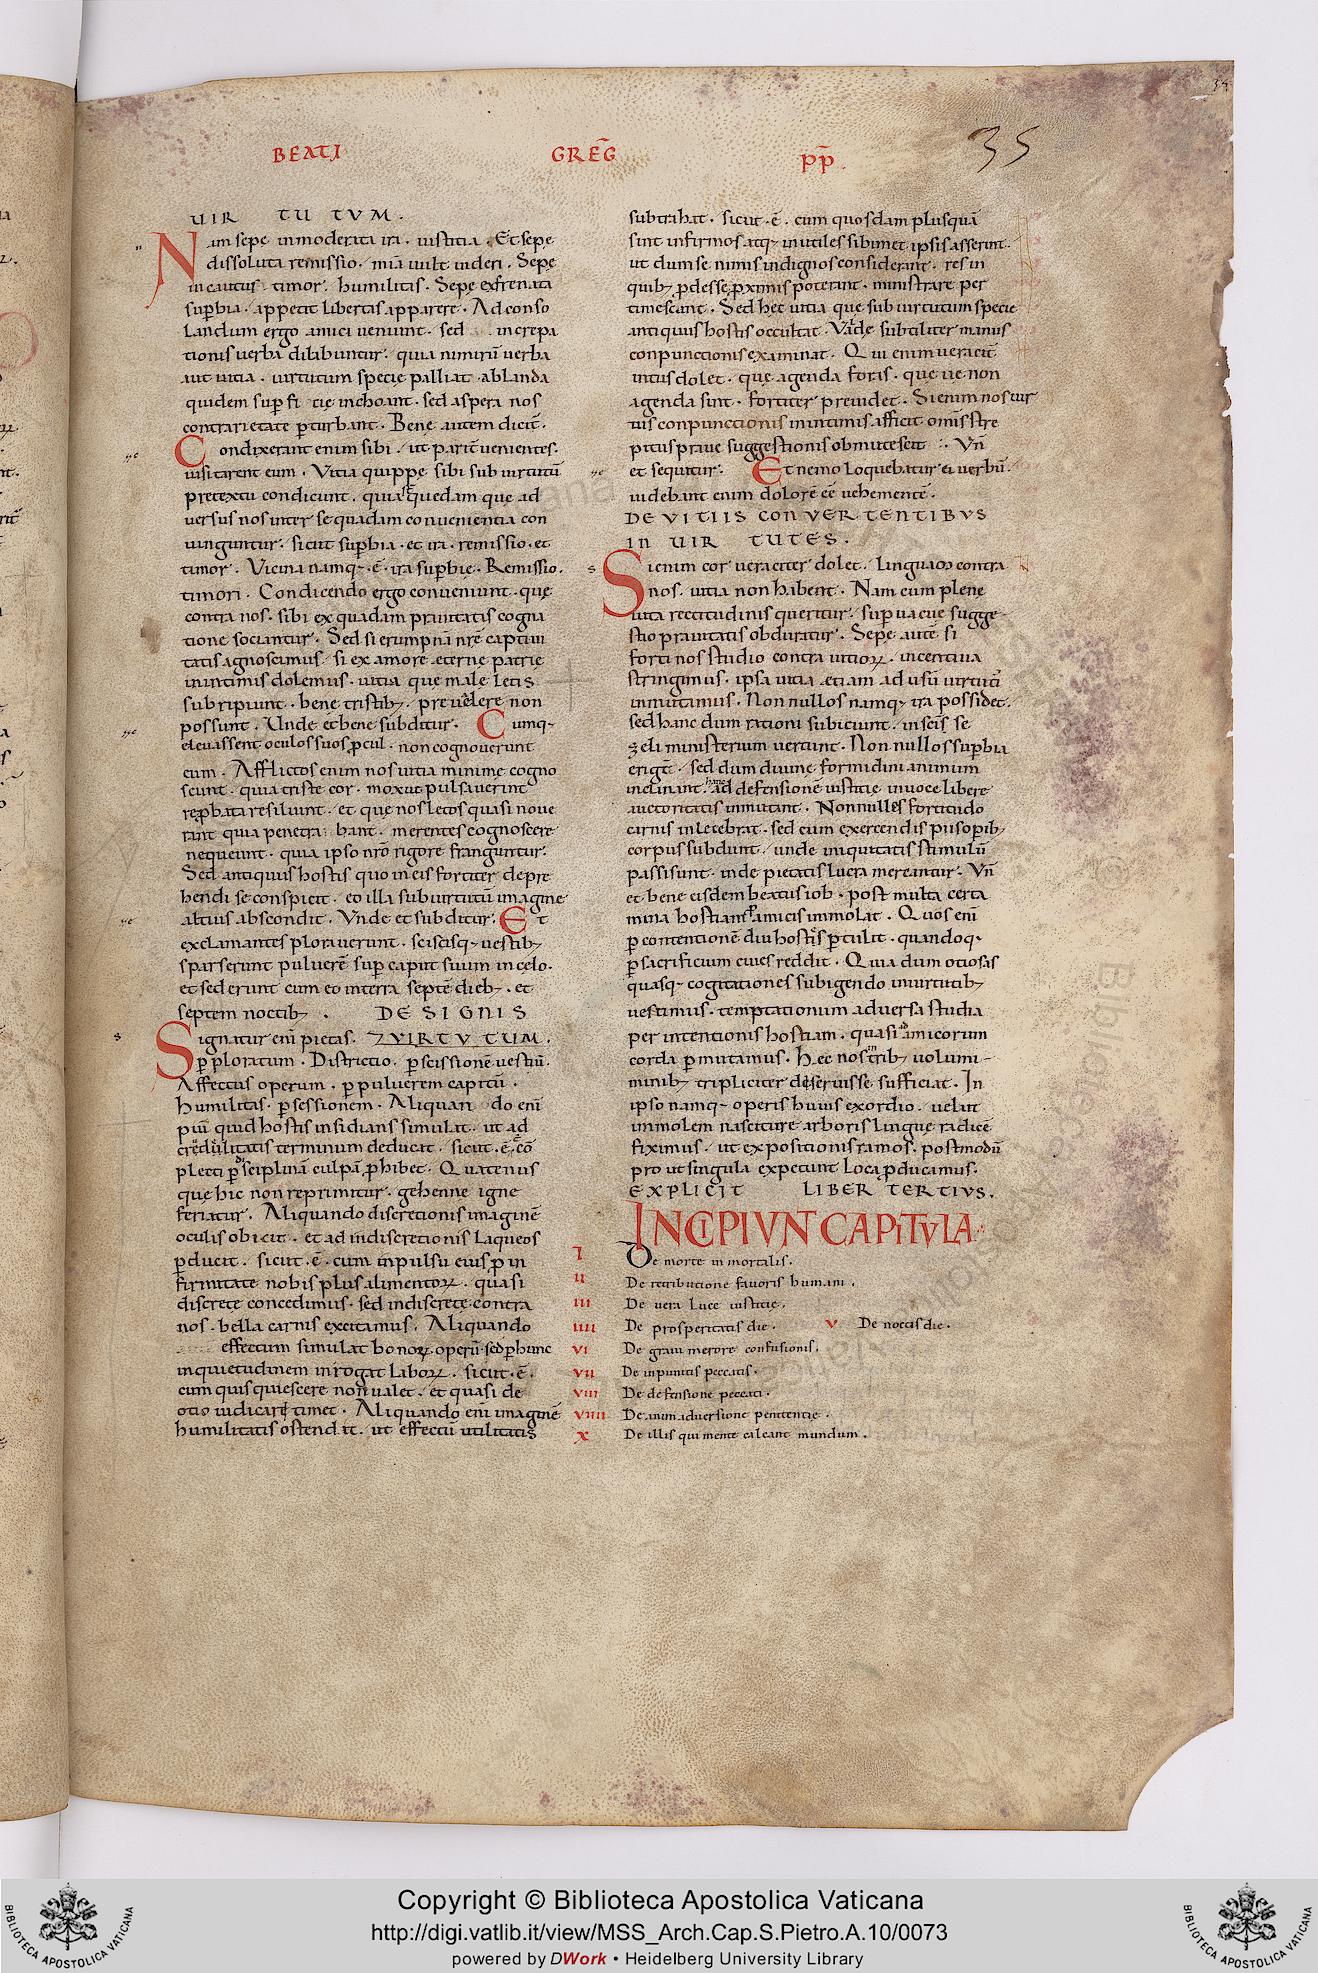 BEATI GREḠ P̄P̄.
35
UIR TU TVM.
Nam sepe inmoderata ira. iusticia. Et sepe
dissoluta remissio. mīa uult uideri. Sepe
incautus timor. humilitas. Sepe exfrenata
suꝑbia. appetit libertas apparere. Ad conso
landum ergo amici ueniunt. sed increpa
tionis uerba dilabuntur. quia nimirū uerba
aut uitia. uirtutum specię palliat. ablanda
quidem suꝑfi cię inchoant. sed aspera nos
contrarietate ꝑturbant. Bene autem dicit̄.
Condixerant enim sibi. ut paritē uenientes.
uisitarent eum. Vitia quippę sibi sub uirtutū
pretextu condicunt. quia quędam que ad
uersus nos inter se quadam conuenientia con
iunguntur. sicut suꝑbia. et ira. remissio. et
timor. Vicina namq; ē. ira suꝑbię. Remissio.
timori. Condicendo ergo conueniunt. quę
contra nos. sibi ex quadam prauitatis cogna
tione sociantur. Sed si erumpnā nrę captiui
tatis agnoscimus. si ex amore ęternę patrię
in intimis dolemus. uitia quę male letis
subripiunt. bene tristib; preuelere non
possunt. Unde et bene subditur. Cumq;
eleuassent oculos suos ꝓcul. non cognouerunt
eum. Afflictos enim nos uitia minime cogno
scunt. quia triste cor. mox ut pulsauerint
reꝓbata resiliunt. et que nos letos quasi noue
runt quia penetra bant. merentes cognoscere
nequeunt. quia ipso nrō rigore franguntur.
Sed antiquus hostis quo in eis fortiter depre
hendi se conspicit. eo illa sub uirtutū imagine
altius abscondit. Vnde et subditur. Et
exclamantes plorauerunt. scissisq; uestib;
sparserunt puluerē suꝑ caput suum in celo.
et sederunt cum eo in terra septē dieb;. et
septem noctib;. DE SIGNIS
Signatur eni pietas. ⁊ VIRTV TUM.
ꝑ ploratum. Districtio. ꝑ scissionē uestiū.
Affectus operum. ꝑ puluerem capitū.
humilitas. ꝑ sessionem. Aliquan do eni
piū quid hostis insidians simulat. ut ad
crudelitatis terminum deducat. sicut. ē. cō
plecti ꝑ disciplinā culpā ꝓhibet. Quatenus
que hic non reprimitur. gehenne igne
feriatur. Aliquando discretionis imaginē
oculis obicit. et ad indiscretionis laqueos
ꝑducit. sicut. ē. cum inpulsu eius ꝓ in
firmitate nobis plus alimentoꝝ. quasi
discrete concedimus. sed indiscrete contra
nos. bella carnis excitamus. Aliquando
effectum simulat bonoꝝ operū. sed ꝑ hunc
inquietudinem inrogat laboꝝ. sicut. ē.
cum quis quiescere non ualet. et quasi de
otio iudicari timet. Aliquando eni imaginē
humilitatis ostend it. ut effectū utilitatis
subtrahat. sicut. ē. cum quosdam plusquā
sint infirmos atq; inutiles sibimet ipsis asserunt.
ut dum se nimis indignos considerant. res in
quib; ꝓdesse ꝓximis poterant. ministrare per
timescant. Sed hec uitia que sub uirtutum specie
antiquus hostis occultat. Valde subtiliter manus
conpunctionis examinat. Qui enim ueracit̄
intus dolet. que agenda foris. que ue non
agenda sint. fortiter preuidet. Si enim nos uir
tus conpunctionis in intimis afficit omīs stre
pitus praue suggestionis obmutescit. Vn̄
et sequitur. Et nemo loquebatur ei uerbū.
uidebant enim dolorē eē uehementē.
DE VITIIS CONVER TENTIBVS
IN UIR TUTES.
Si enim cor ueraciter dolet. linguam contra
nos. uitia non habent. Nam cum plene
uita rectitudinis queritur. supuacue sugge
stio prauitatis obduratur. Sepe autē si
forti nos studio contra uitioꝝ. incentiua
stringimus. ipsa uitia etiam ad usū uirtutū
inmutamus. Non nullos namq; ira possidet.
sed hanc dum rationi subiciunt. in scīs se
zeli ministerium uertunt. Non nullos suꝑbia
erigit. sed dum diuine formidini animum
inclinant. hanc ad defensionē iustitię in uoce libere
auctoritatis inmutant. Nonnulles fortitudo
carnis inlecebrat. sed cum exercendis piis opib;
corpus subdunt. unde iniquitatis stimulū
passi sunt. inde pietatis lucra mercantur. Vn̄
et bene eisdem beatus iob. post multa certa
mina hostiam ꝓ amicis immolat. Quos eni
ꝑ contentionē diu hostis ꝑtulit. quandoq;
ꝑ sacrificium ciues reddit. Quia dum otiosas
quasq; cogitationes subigendo in uirtutib;
uestimus. temptationum aduersa studia
per intentionis hostiam. quasi amicorum
corda ꝑmutamus. Hec nos trib; uolumi-
minib; tripliciter deseruisse sufficiat. In
ipso namq; operis huius exordio. uelut
in molem nasciture arboris lingue radicē
fiximus. ut expositionis ramos. postmodū
pro ut singula expetunt loca ꝓducamus.
EXPLICIT LIBER TERTIVS.
INCIPIVNT CAPITVLA
I De morte in mortalis.
II De retributione fauoris humani.
III De uera luce iusticię.
IIII De prosperitatis die. V De noctis die.
VI De graui merore confusionis.
VII De inpunitis peccatis.
VIII De defensione peccati.
VIIII De animaduersione penitentię.
X De illis qui mente caleant mundum.
Copyright © Biblioteca Apostolica Vaticana
http://digi.vatlib.it/view/MSS_Arch.Cap.S.Pietro.A.10/0073
powered by DWork • Heidelberg University Library
BIBLIOTECA APOSTOLICA VATICANA
BIBLIOTECA APOSTOLICA VATICANA